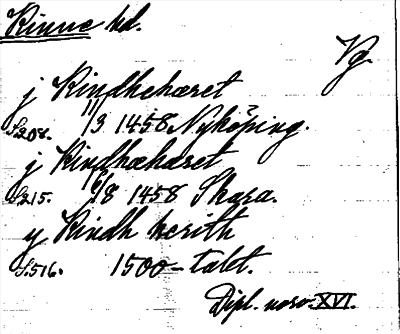 Kinne hd.
Vg.
j Kindhehæret
S208. 11/3 1458 Nyköping.
j Kindhæhæret
S215. 16/8 1458 Skara.
y Kindh herith
S.516. 1500-talet.
Dipl. norv. XVI.